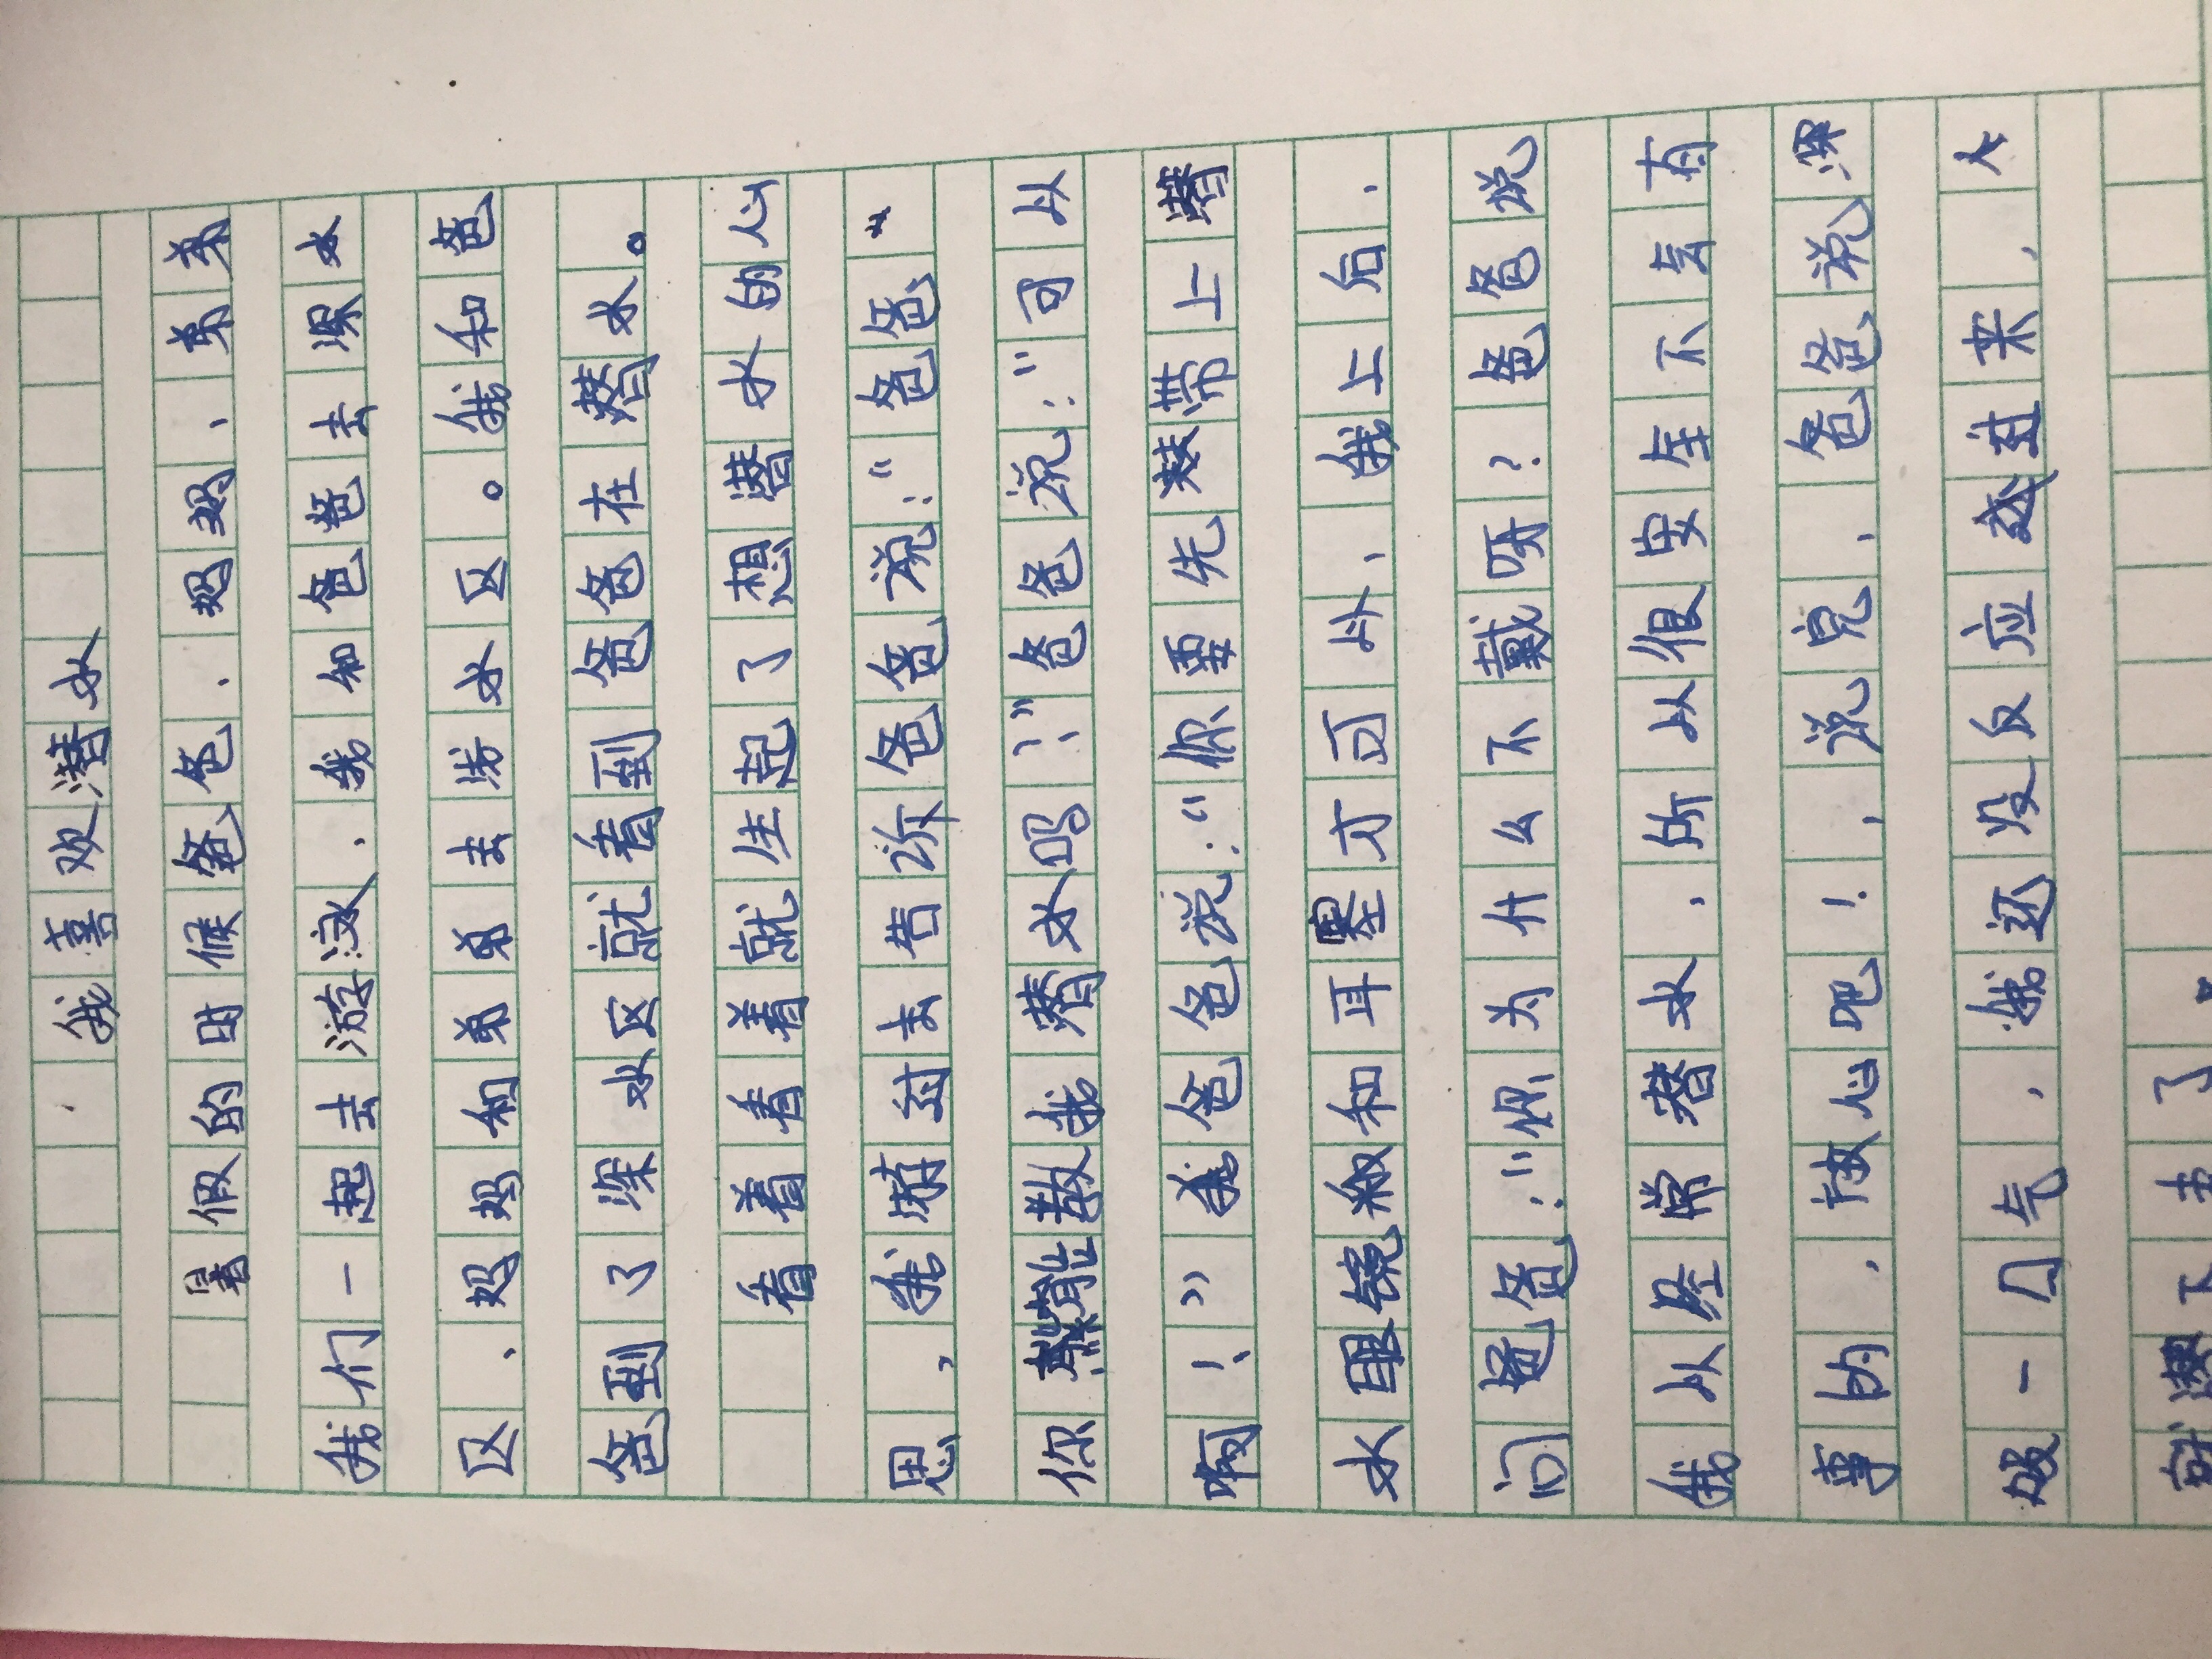 我喜欢潜水
暑假的时候爸爸、妈妈、弟弟
我们一起去游泳，我和爸爸去深水
区，妈妈和弟弟去浅水区。我和爸
爸到了深水区就看到爸爸在潜水。
看着看着就生起了想潜水的心
思，我游过去告诉爸爸说：“爸爸
你能教我潜水吗？”爸爸说：“可以
啊！”爸爸说：“你要先带上潜
水眼镜和耳塞才可以，我上后，
问爸爸：“你为什么不戴呀？爸爸说
我以经常潜水，所以很安全不会有
事的，放心吧！，说完，爸爸说深
吸一口气，我还没反应过来，人
就潜下去了。